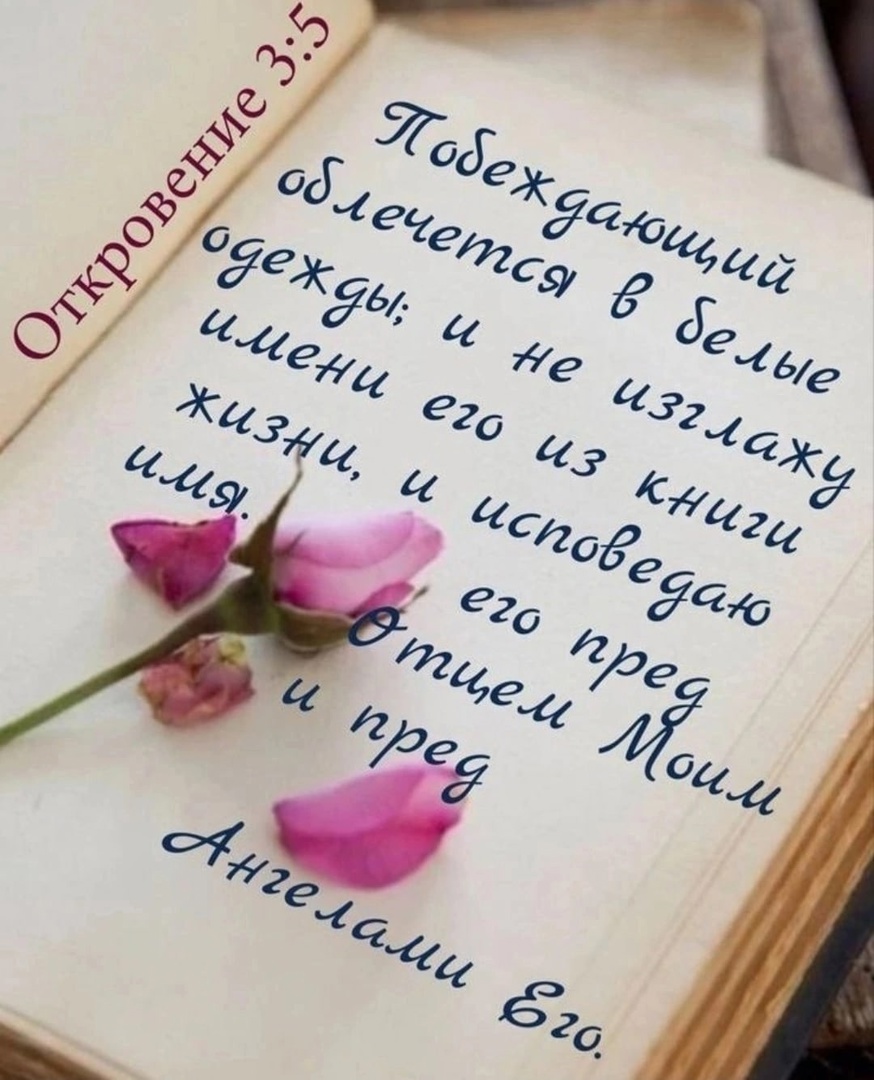 Откровение 3:5
Побеждающий
облечется в белые
одежды; и не изглажу
имени его из книги
жизни, и исповедаю
имя. его пред
Отцем Моим
и пред
Ангелами Его.